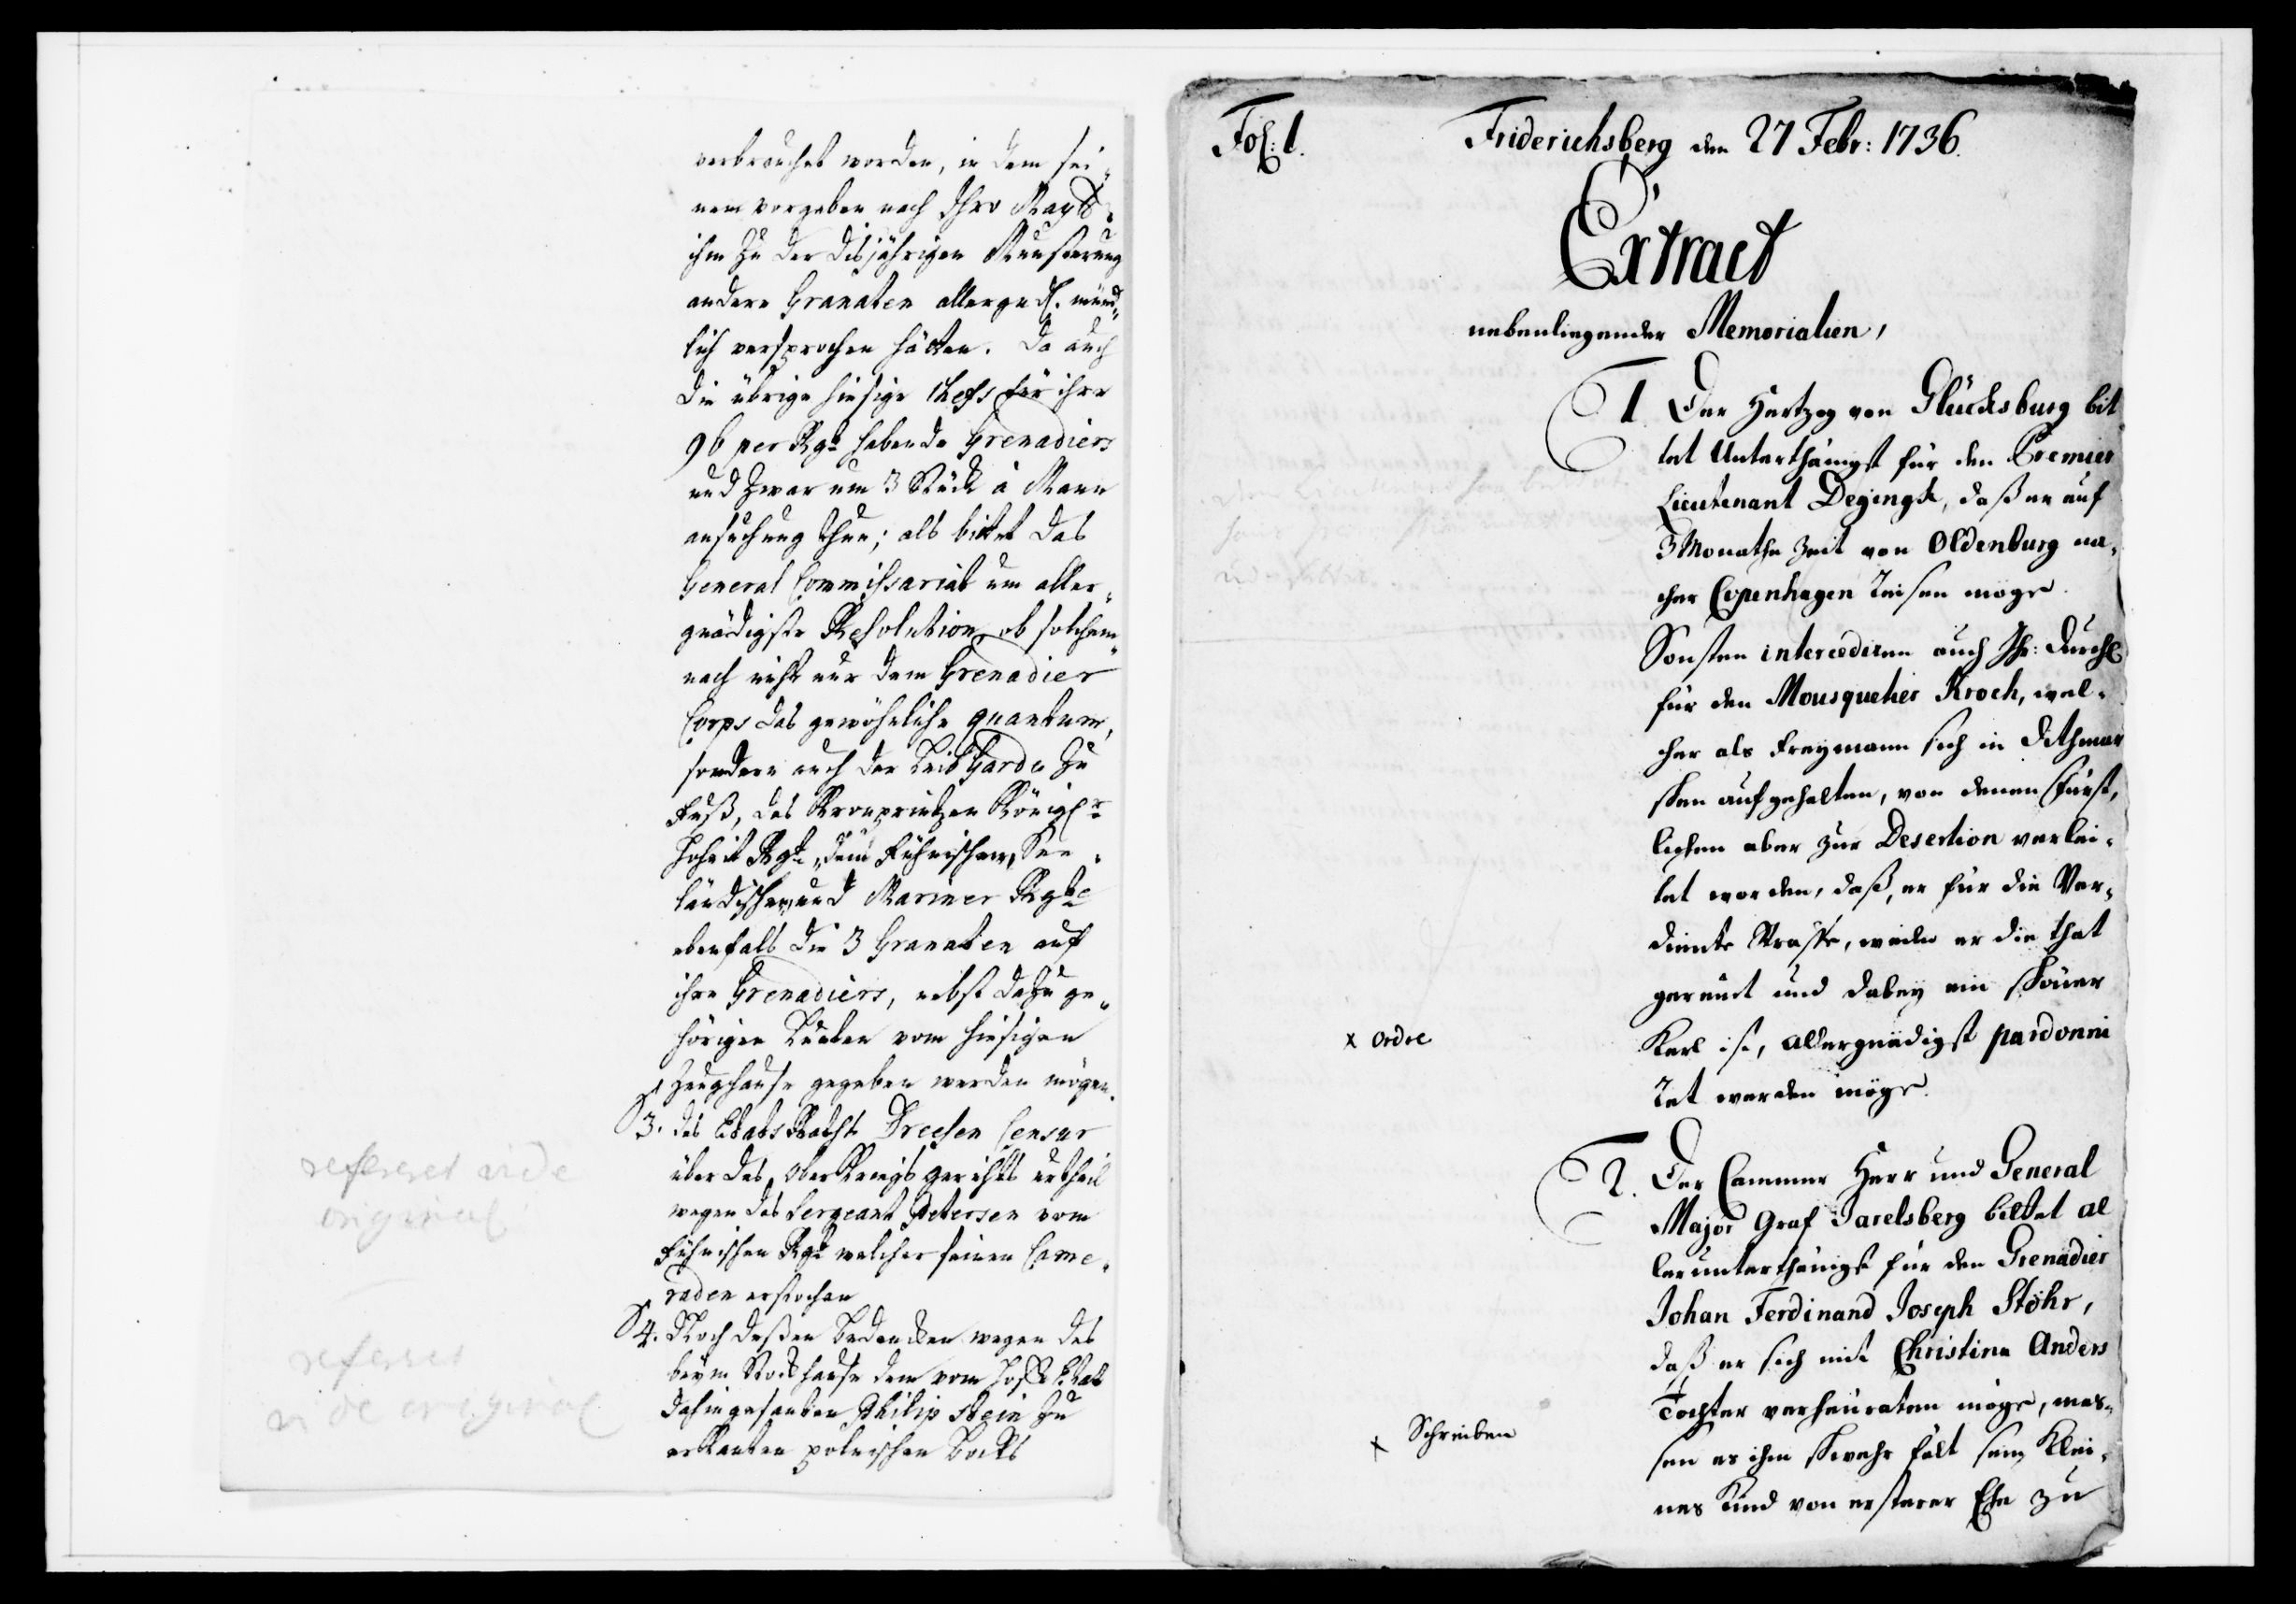 verbrauchet worden, in dem sei-
nem vorgeben nach Ihro Maytt.
ihm zu der disjährigen Munsterung
andere Granaten allergndst. münd-
lich versprochen hätten. Da auch
die übrige hiesige Chefs für ihre
96 per Rgt. habende Grenadiers
und zwar um 3 Stück à Mann
ansuchung thun; als bittet das
General Commissariat um aller-
gnädigste Resolution, ob solchem-
nach nicht nur dem Grenadier
Corps das gewöhnliche quantum,
sondern auch der Leib Garde zu
Fuß, des Kronprintzen Königl.
Hoheit Rgt. dem Fühnischen, See-
ländischen und Mariner Rgt.
ebenfals die 3 Granaten auf
ihre Grenadiers, nebst dazu ge-
hörigen Lunten vom hiesigen
Zeughause gegeben werden mögen.
3. Des Etats Rahts Dreesen Censur
über das Ober Kriegs gerichts urtheil
wegen des Sergeant Petersen vom
Fühnischen Rgt. welcher seinen Came-
raden erstochen
referret vide
original
4. Noch deßen bedencken wegen des
beym Stockhause dem vom Hoff Etat
dahin gesandten Philip Stein zu
erkanten polnischen Bocks
referret
vide original
Fol: 1.
Friderichsberg den 27 Febr: 1736.
Extract
nebenliegender Memorialien,
1. Der Hertzog von Glücksburg bit
tet Unterthänigst für den Premier
Lieutenant Degingk, daß er auf
3 Monathe Zeit von Oldenburg na-
cher Copenhagen reisen möge.
Sonsten intercediren auch Ihr: Durchl
für den Mousquetier Kroch, wel-
cher als Freymann sich in Dithmar
schen aufgehalten, von denen Fürst-
lichen aber zur Desertion verlei-
tet worden, daß er für die Ver-
diente Straffe, weiln er die that
gereuet und dabey ein schöner
Kerl ist, allergnädigst pardonni
ret werden möge.
x ordre
2. Der Cammer Herr und General
Major Graf Jarelsberg bittet al
lerunterthänigst für den Grenadier
Johan Ferdinand Joseph Stöhr,
daß er sich mit Christina Anders
Tochter verheuraten möge, mas-
sen es ihm schwehr fält sein klei-
nes Kind von ersterer Ehe zu
x Schreiben